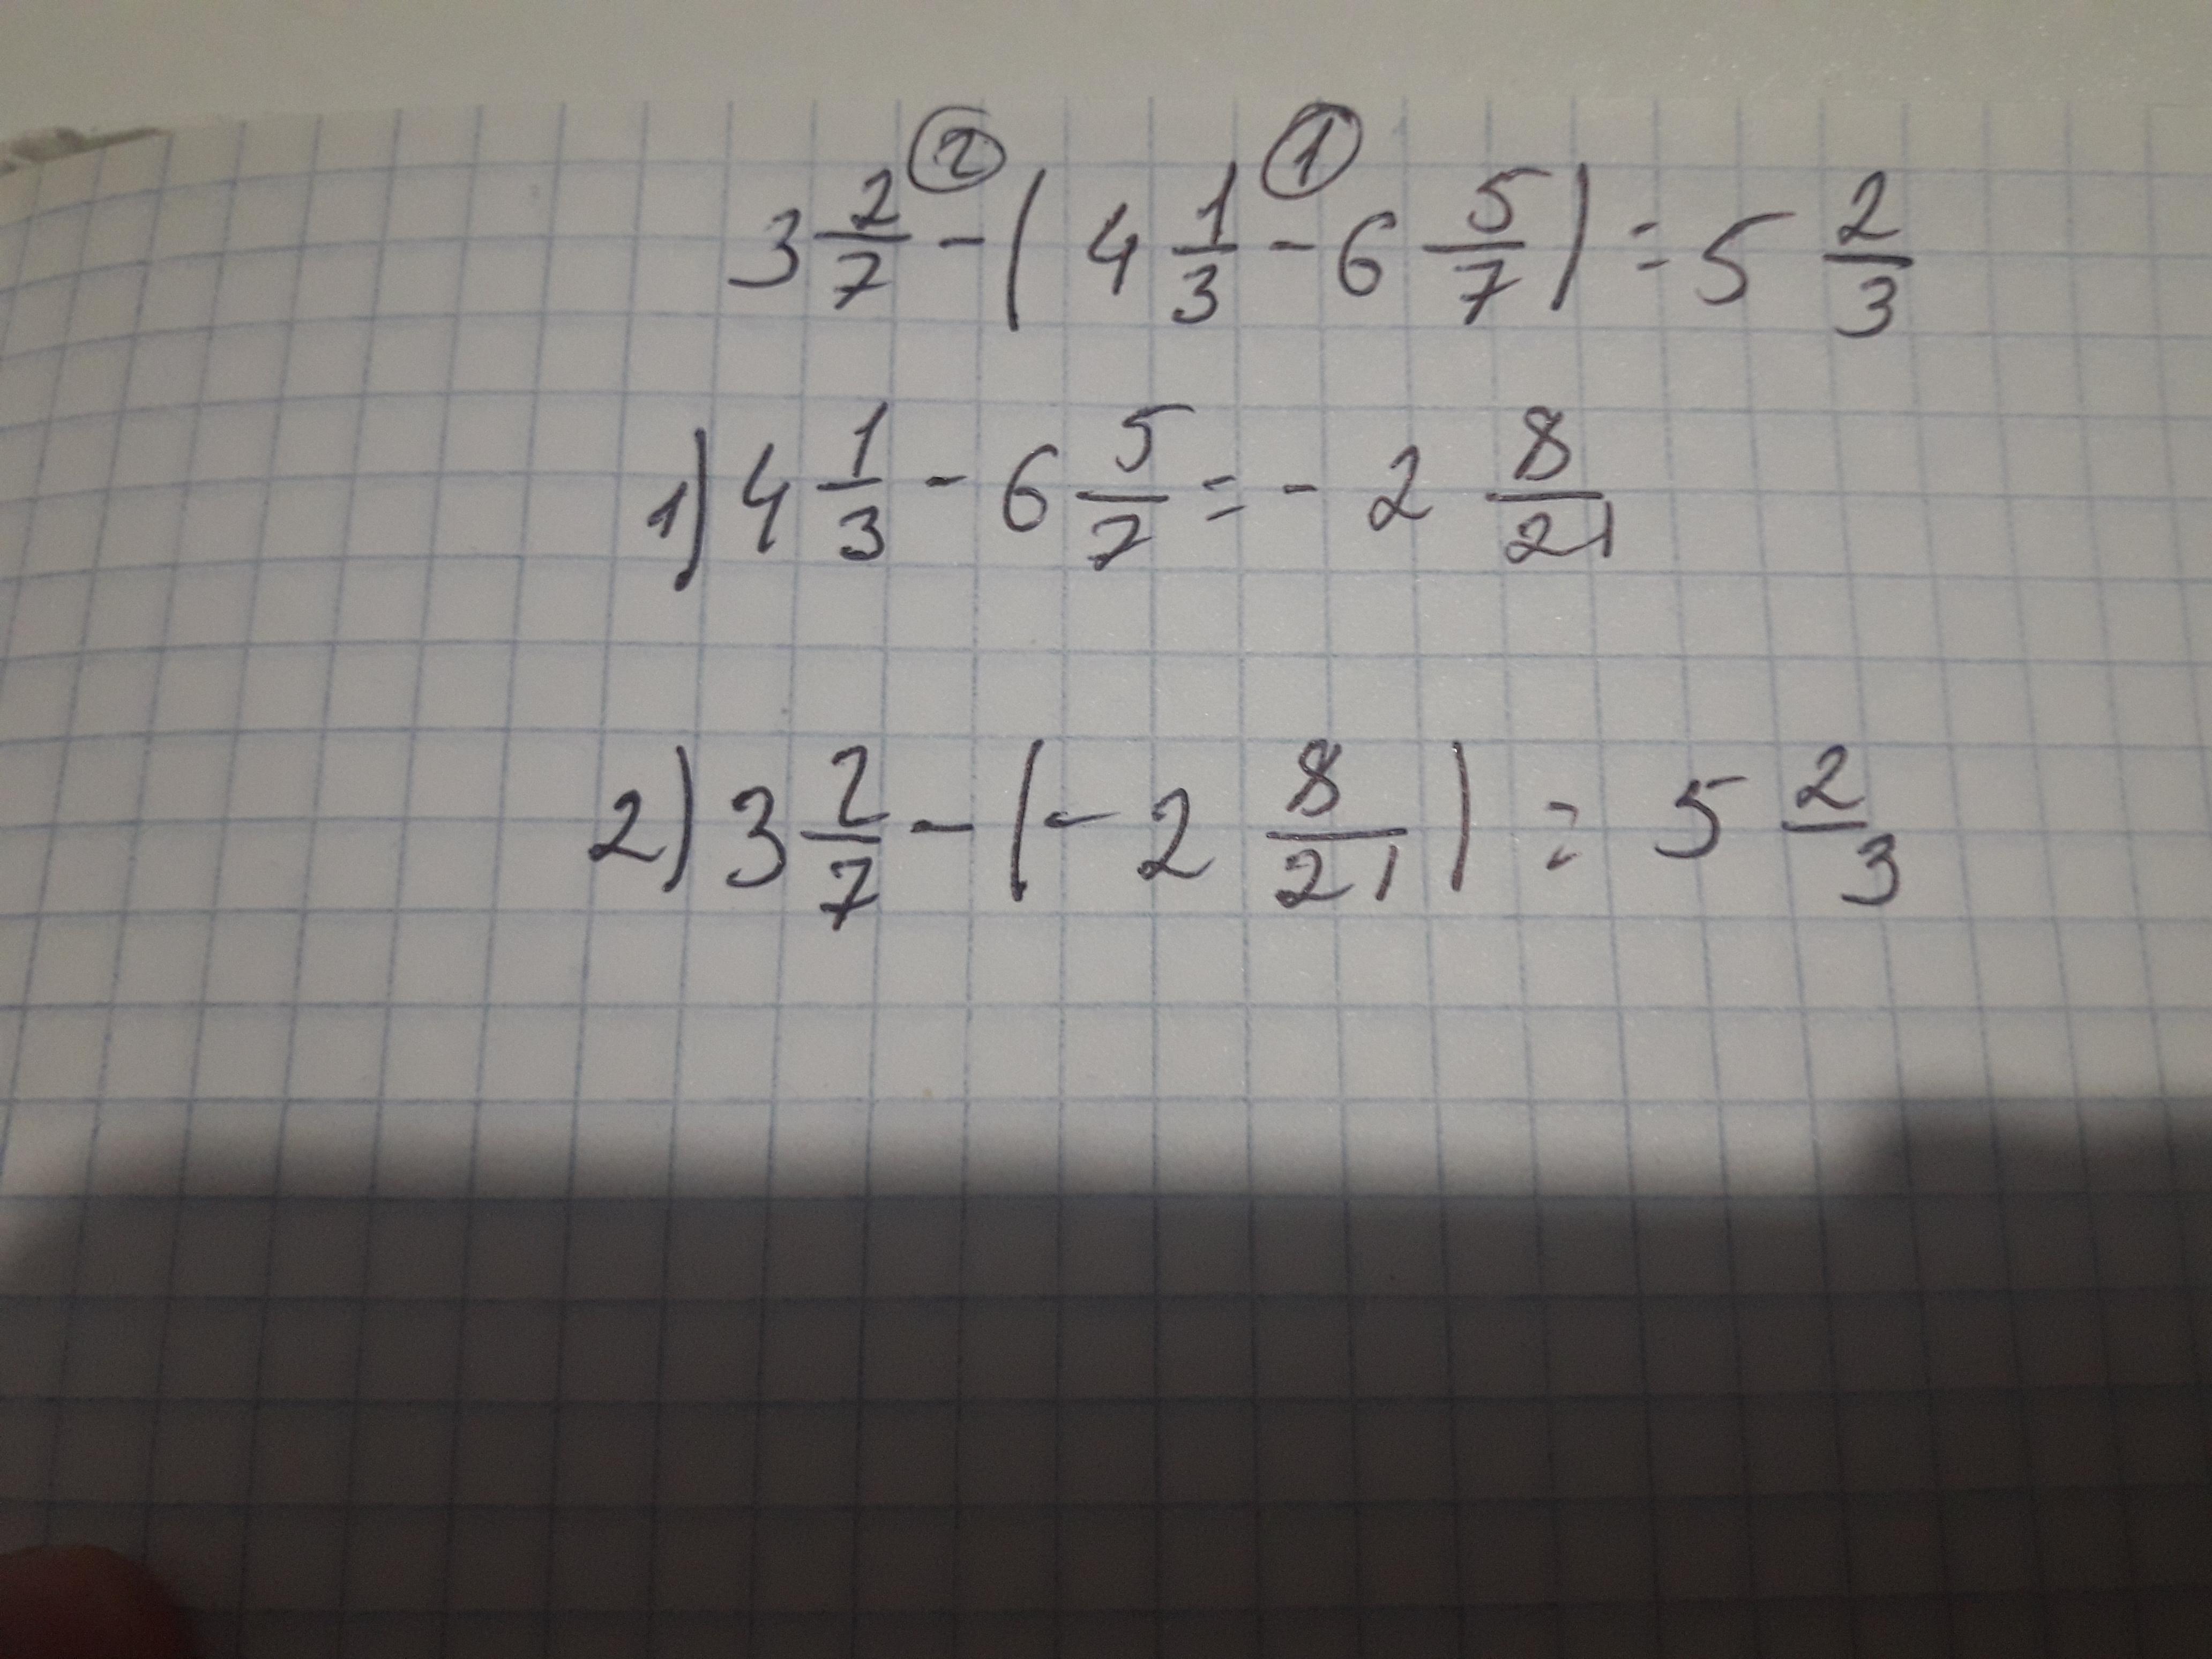 3 2/7 - (4 1/3 - 6 5/7) = 5 2/3
② ①
1) 4 1/3 - 6 5/7 = - 2 8/21
2) 3 2/7 - (- 2 8/21) = 5 2/3